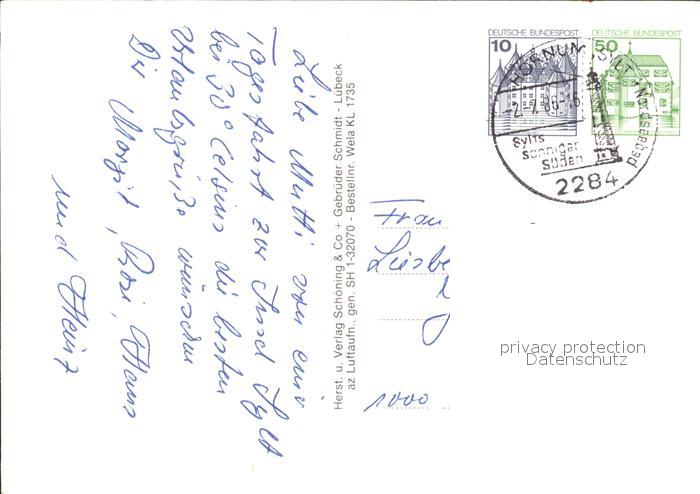 Liebe Mutti von einer
Tagesfahrt zur Insel Sylt
bei 30° Celsius die besten
Urlaubsgrüße wünschen
Dir Margit, Rosi, Hans
und Heinz
Herst. u. Verlag Schöning & Co + Gebrüder Schmidt - Lübeck
az Luftaufn., gen. SH 1-32070 - Bestellnr. Wela KL 1735
DEUTSCHE BUNDESPOST
10
DEUTSCHE BUNDESPOST
50
HÖRNUM SYLT Nordseebad
Sylts
sonniger
Süden
2284
Frau
1000
privacy protection
Datenschutz